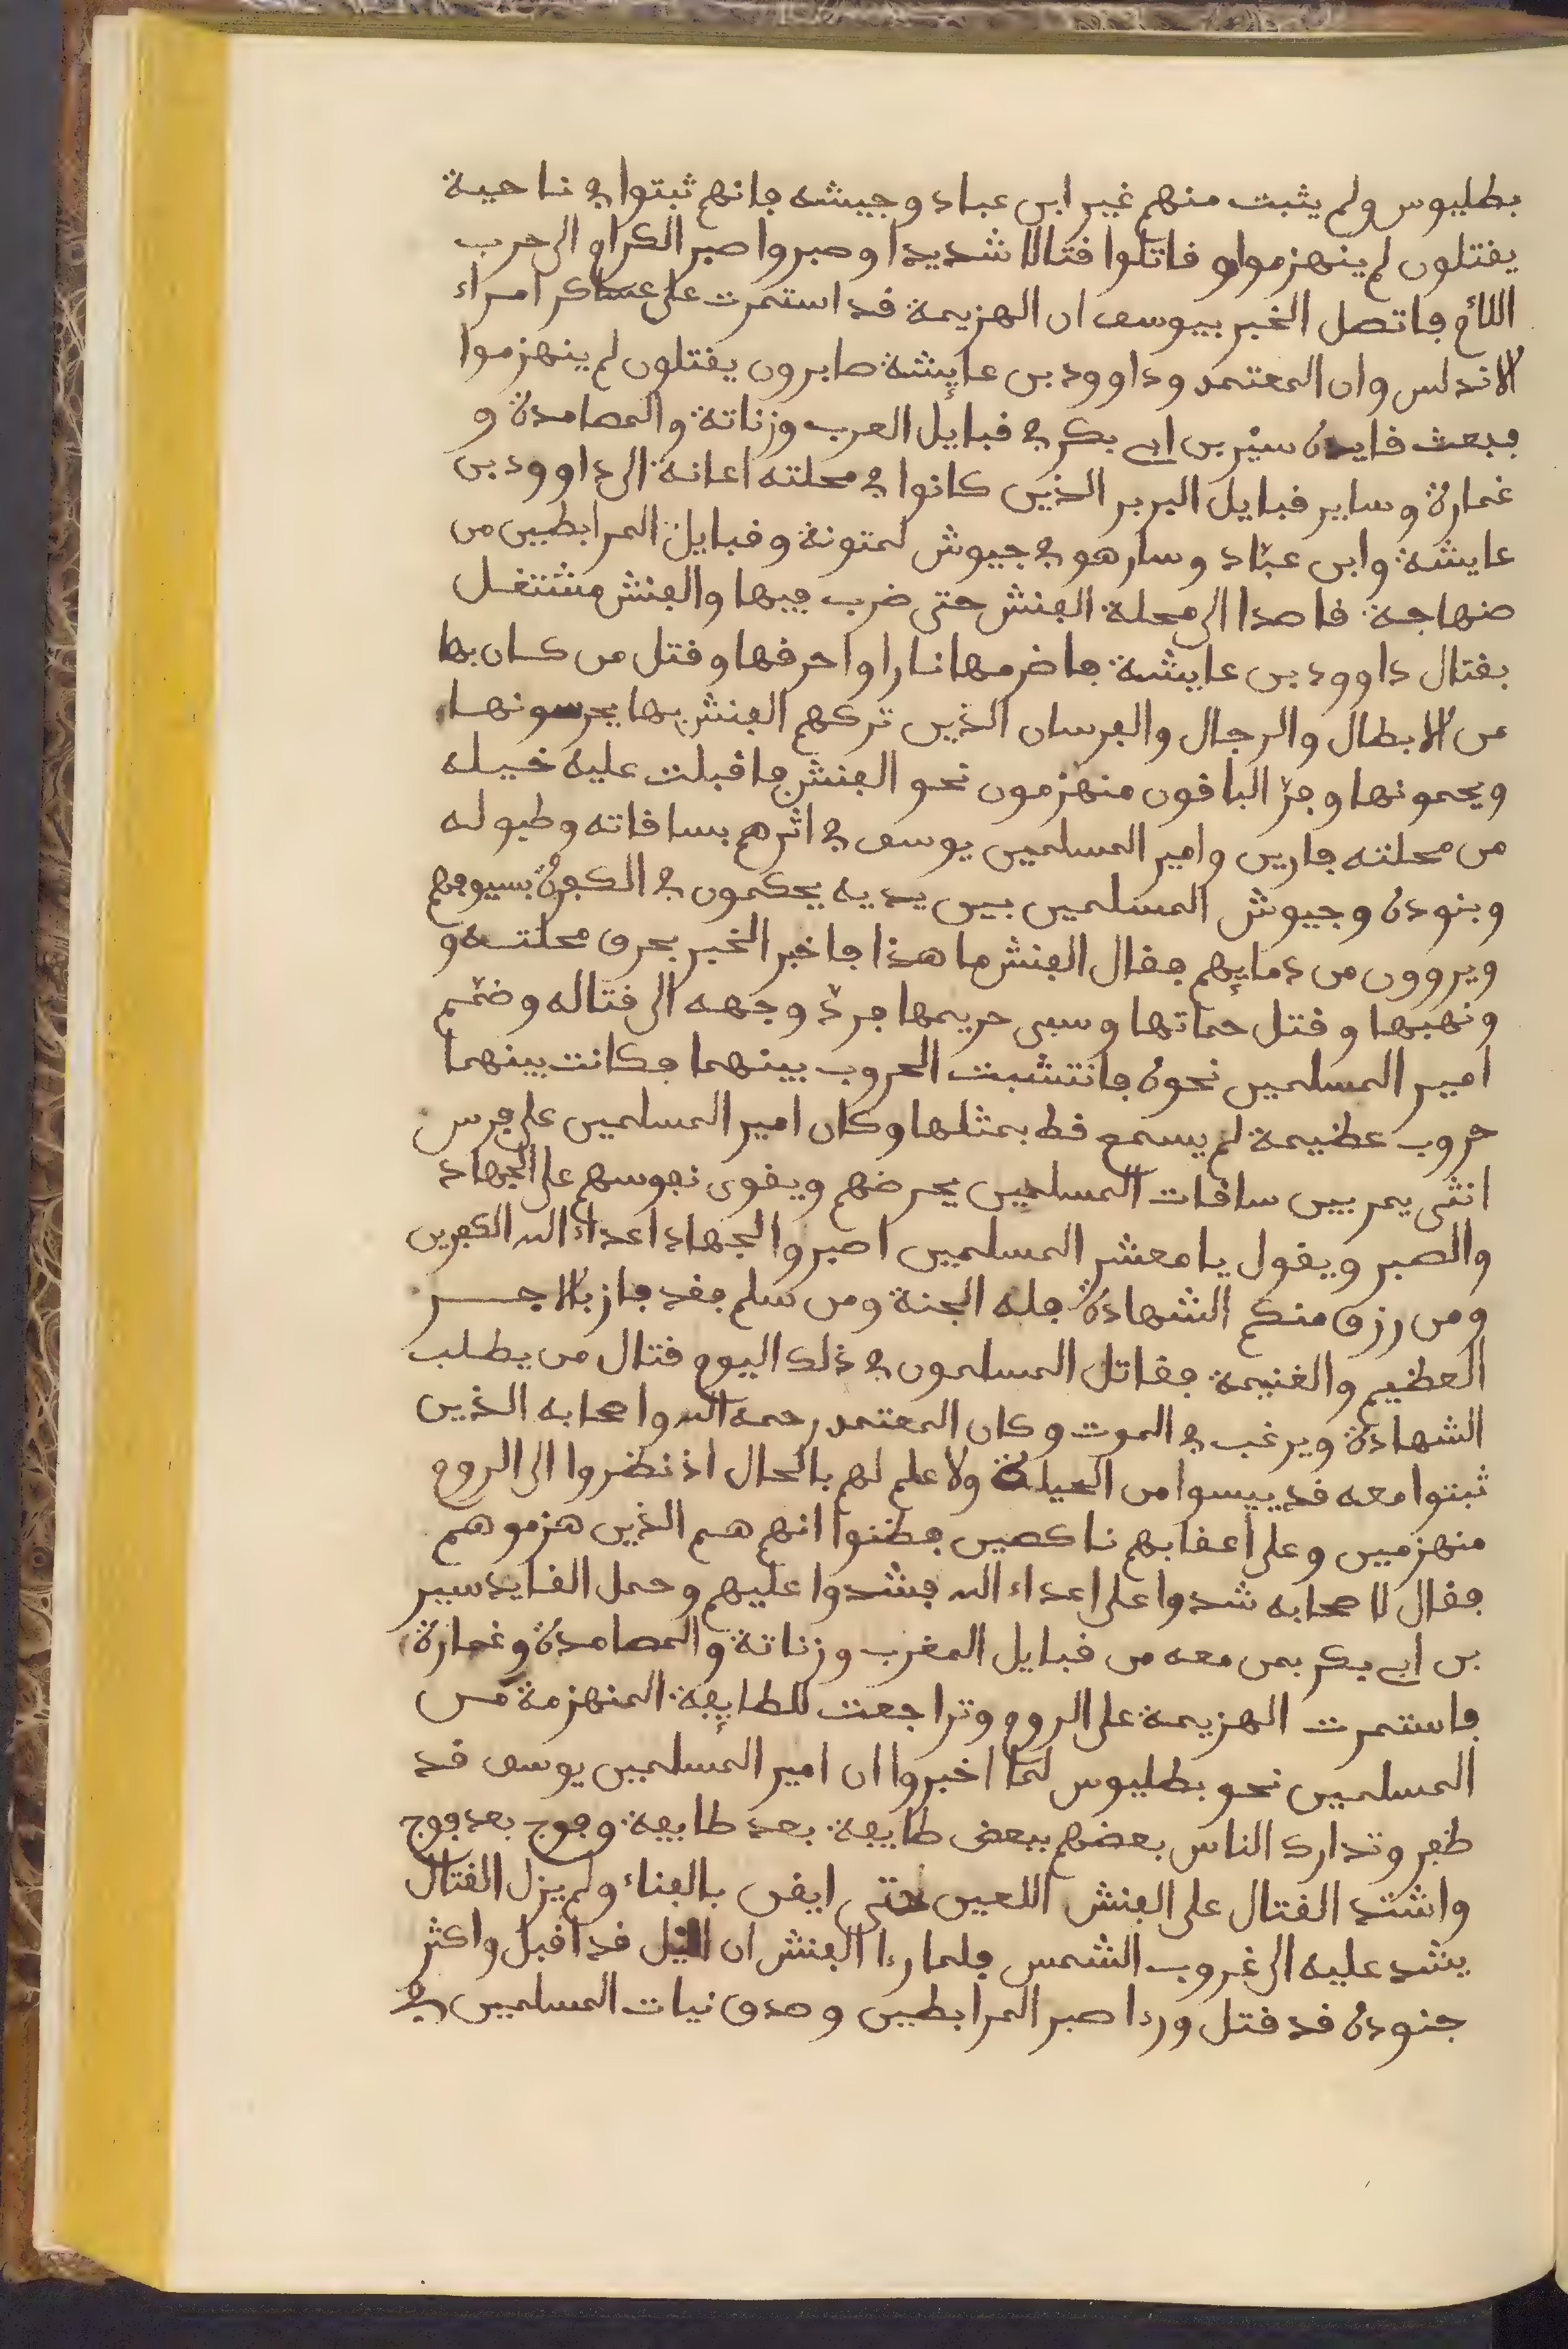 بطليوس ولم يثبت منهم غير ابن عباد وجيشه فانهم ثبتوا في ناحية
يقتلون لم ينهزموا وقاتلوا قتالا شديدا وصبروا صبر الكرام الى حرب
اللئام فاتصل الخبر بيوسف ان الهزيمة قد استمرت على عساكر امراء
الاندلس وان المعتمد وداوود بن عايشة صابرون يقتلون لم ينهزموا
فبعث قايده سير بن ابي بكر في قبايل العرب وزناتة والمصامدة و
غمارة وساير قبايل البربر الذين كانوا في محلته اعانة الى داوود بن
عايشة وابن عبّاد وسار هو في جيوش لمتونة وقبايل المرابطين من
صنهاجة قاصدا الى محلة الفنش حتى ضرب فيها والفنش مشتغل
بقتال داوود بن عايشة فاضرمها نارا واحرقها وقتل من كان بها
من الابطال والرجال والفرسان الذين تركهم الفنش بها يحرسونها
ويحمونها وفرّ الباقون منهزمون نحو الفنش فاقبلت عليه خيله
من محلته فارين وامير المسلمين يوسف في اثرهم بساقاته وطبوله
وبنوده وجيوش المسلمين بين يديه يحكمون في الكفرة بسيوفهم
ويروون من دمايهم فقال الفنش ما هذا فاخبر الخبر بحرق محلته و
ونهبها وقتل حماتها وسبى حريمها فردّ وجهه الى قتاله وضمّم
امير المسلمين نحوه فانتشبت الحروب بينهما فكانت بينهما
حروب عظيمة لم يسمع قط بمثلها وكان امير المسلمين على فرس
انثى يمر بين ساقات المسلمين يحرضهم ويقوى نفوسهم على الجهاد
والصبر ويقول يا معشر المسلمين اصبروا لجهاد اعداء الله الكفرين
ومن رزق منكم الشهادة فله الجنة ومن سلم فقد فاز بالاجر
العظيم والغنيمة فقاتل المسلمون في ذلك اليوم قتال من يطلب
الشهادة ويرغب في الموت وكان المعتمد رحمه الله واصحابه الذين
ثبتوا معه قد ييسوا من الحيلة ولا علم لهم بالحال اذ نظروا الى الروم
منهزمين وعلى أعقابهم ناكصين فظنوا انهم هم الذين هزموهم
فقال لاصحابه شدوا على اعداء الله فشدوا عليهم وحمل القايد سير
بن ابي بكر بمن معه من قبايل المغرب وزناتة والمصامدة وغمارة
فاستمرت الهزيمة على الروم وتراجعت للطايفة المنهزمة من
المسلمين نحو بطليوس لمّا اخبروا ان امير المسلمين يوسف قد
ظفر وتدارك الناس بعضهم ببعض طايفة بعد طايفة وفوج بعد فوج
واشتد القتال على الفنش اللعين حتى ايقن بالفناء ولم يزل القتال
يشد عليه الى غروب الشمس فلما رءا الفنش ان الليل قد اقبل واكثر
جنوده قد قتل ورءا صبر المرابطين وصدق نيات المسلمين في